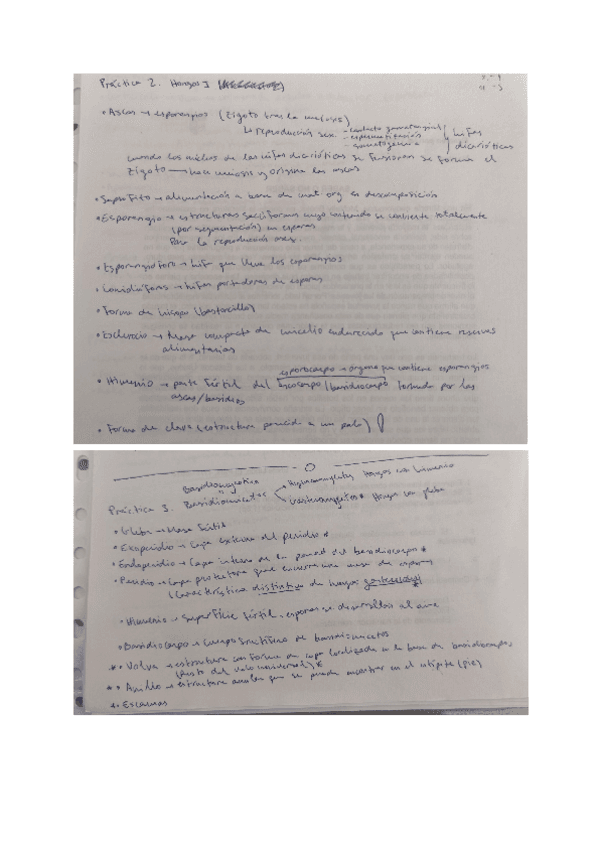 Práctica 2. Hongos I
• Ascas → esporangios (zigoto tras la meiosis)
↳ reproducción sex. - contacto gametangial
- espermatización
- somatogamia
hifas dicarióticas
cuando los núcleos de las hifas dicarióticas se fusionan se forma el
zigoto → hace meiosis y origina las ascas
• Saprófito → alimentación a base de mat org en descomposición
• Esporangio → estructuras saciformes cuyo contenido se convierte totalmente
(por segmentación) en esporas
Para la reproducción asex.
• Esporangióforo → hifa que lleva los esporangios
• Conidióforos → hifas portadoras de esporas
• Forma de hisopo (bastoncillo)
• Esclerocio → Masa compacta de micelio endurecido que contiene reservas
alimentarias
esporocarpo → órgano que contiene esporangios
• Himenio → parte fértil del ascocarpo/basidiocarpo formada por las
ascas/basidios
• Forma de clava (estructura parecida a un palo)
Práctica 3. Basidiomicetos
Himenomycetes Hongos con himenio
Gasteromycetes Hongos con gleba
• Gleba → Masa fértil
• Exoperidio → Capa externa del peridio *
• Endoperidio → Capa interna de la pared del basidiocarpo *
• Peridio → Capa protectora que encierra una masa de esporas
(característica distintiva de hongos gasteroides)
• Himenio → superficie fértil, esporas se desarrollan al aire
• Basidiocarpo → Cuerpo fructífero de basidiomicetos
* • Volva → estructura con forma de copa localizada en la base de basidiocarpos
(resto del velo universal) *
* • Anillo → estructura anular que se puede encontrar en el estípite (pie)
* • Escamas